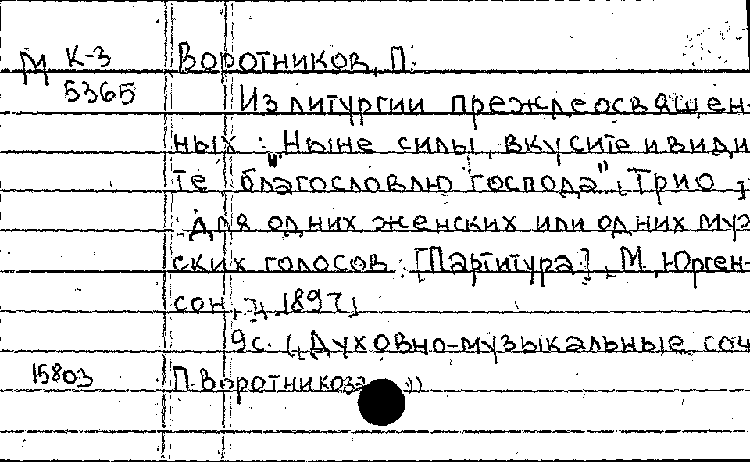 М К-3 Воротников, П.
5365 Из литургии преждеосвящен-
ных: "Ныне силы, вкусите и види
те благословлю господа", Трио,
для одних женских или одних муж
ских голосов. [Партитура]. М., Юрген-
сон, 1897,
9с. (Духовно-музыкальные соч
15803 П. Воротникова)